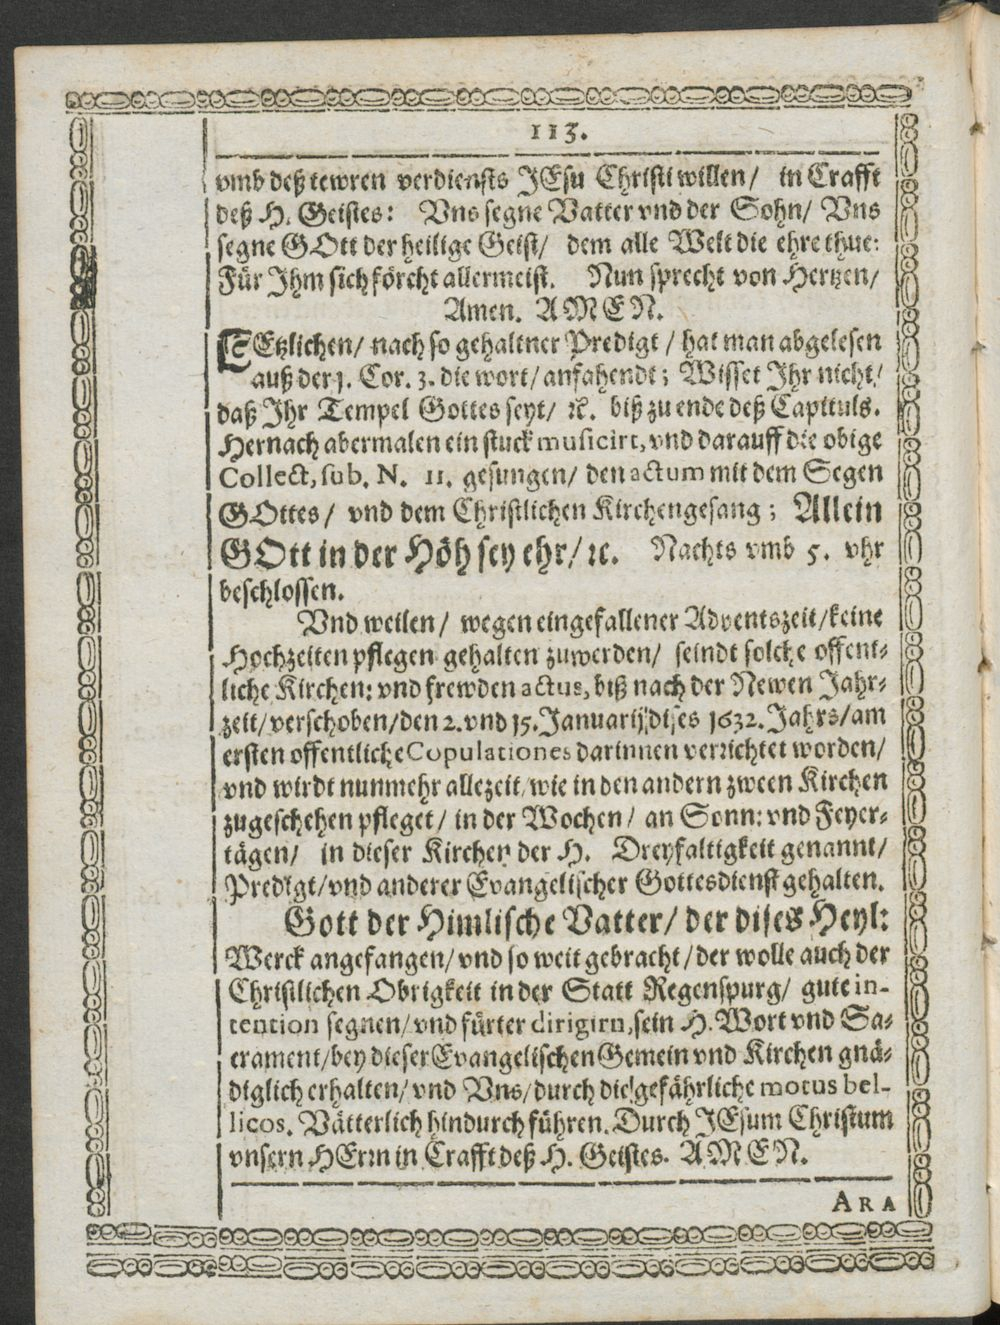 113.
vmb deß tewren verdiensts JEsu Christi willen/ in Crafft
deß H. Geistes: Vns segne Vatter vnd der Sohn/ Vns
segne GOtt der heilige Geist/ dem alle Welt die ehre thue:
Für Jhm sich förcht allermeist. Nun sprecht von Hertzen/
Amen. AMEN.
LEtzlichen/ nach so gehaltner Predigt / hat man abgelesen
auß der 1. Cor. 3. die wort/ anfahendt; Wisset Jhr nicht/
daß Jhr Tempel Gottes seyt/ ꝛc. biß zu ende deß Capituls.
Hernach abermalen ein stuck musicirt, vnd darauff die obige
Collect, sub. N. 11. gesungen/ den actum mit dem Segen
GOttes/ vnd dem Christlichen Kirchengesang; Allein
GOtt in der Höh sey ehr/ ꝛc. Nachts vmb 5. vhr
beschlossen.
Vnd weilen/ wegen eingefallener Adventszeit/ keine
Hochzeiten pflegen gehalten zuwerden/ seindt solche offent-
liche Kirchen: vnd frewden actus, biß nach der Newen Jahr-
zeit/ verschoben/ den 2. vnd 15. Januarij dises 1632. Jahrs/ am
ersten offentliche Copulationes darinnen verrichtet worden/
vnd wirdt nunmehr allezeit/ wie in den andern zween Kirchen
zugeschehen pfleget/ in der Wochen/ an Sonn: vnd Feyer-
tägen/ in dieser Kirchen der H. Dreyfaltigkeit genannt/
Predigt/ vnd anderer Evangelischer Gottesdienst gehalten.
Gott der Himlische Vatter/ der dises Heyl:
Werck angefangen/ vnd so weit gebracht/ der wolle auch der
Christlichen Obrigkeit in der Statt Regenspurg/ gute in-
tention segnen/ vnd fürter dirigirn, sein H. Wort vnd Sa-
crament/ bey dieser Evangelischen Gemein vnd Kirchen gnä-
diglich erhalten/ vnd Vns/ durch die gefährliche motus bel-
licos. Vätterlich hindurch führen. Durch JEsum Christum
vnsern HErrn in Crafft deß H. Geistes. AMEN.
ARA